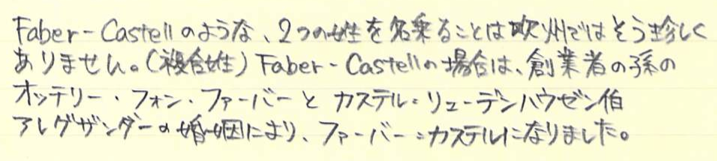 Faber-Castellのような、2つの姓を名乗ることは欧州ではそう珍しく
ありません。(複合姓) Faber-Castellの場合は、創業者の孫の
オッテリー・フォン・ファーバーと カステル=リューデンハウゼン伯
アレグザンダーの婚姻により、ファーバー=カステルになりました。